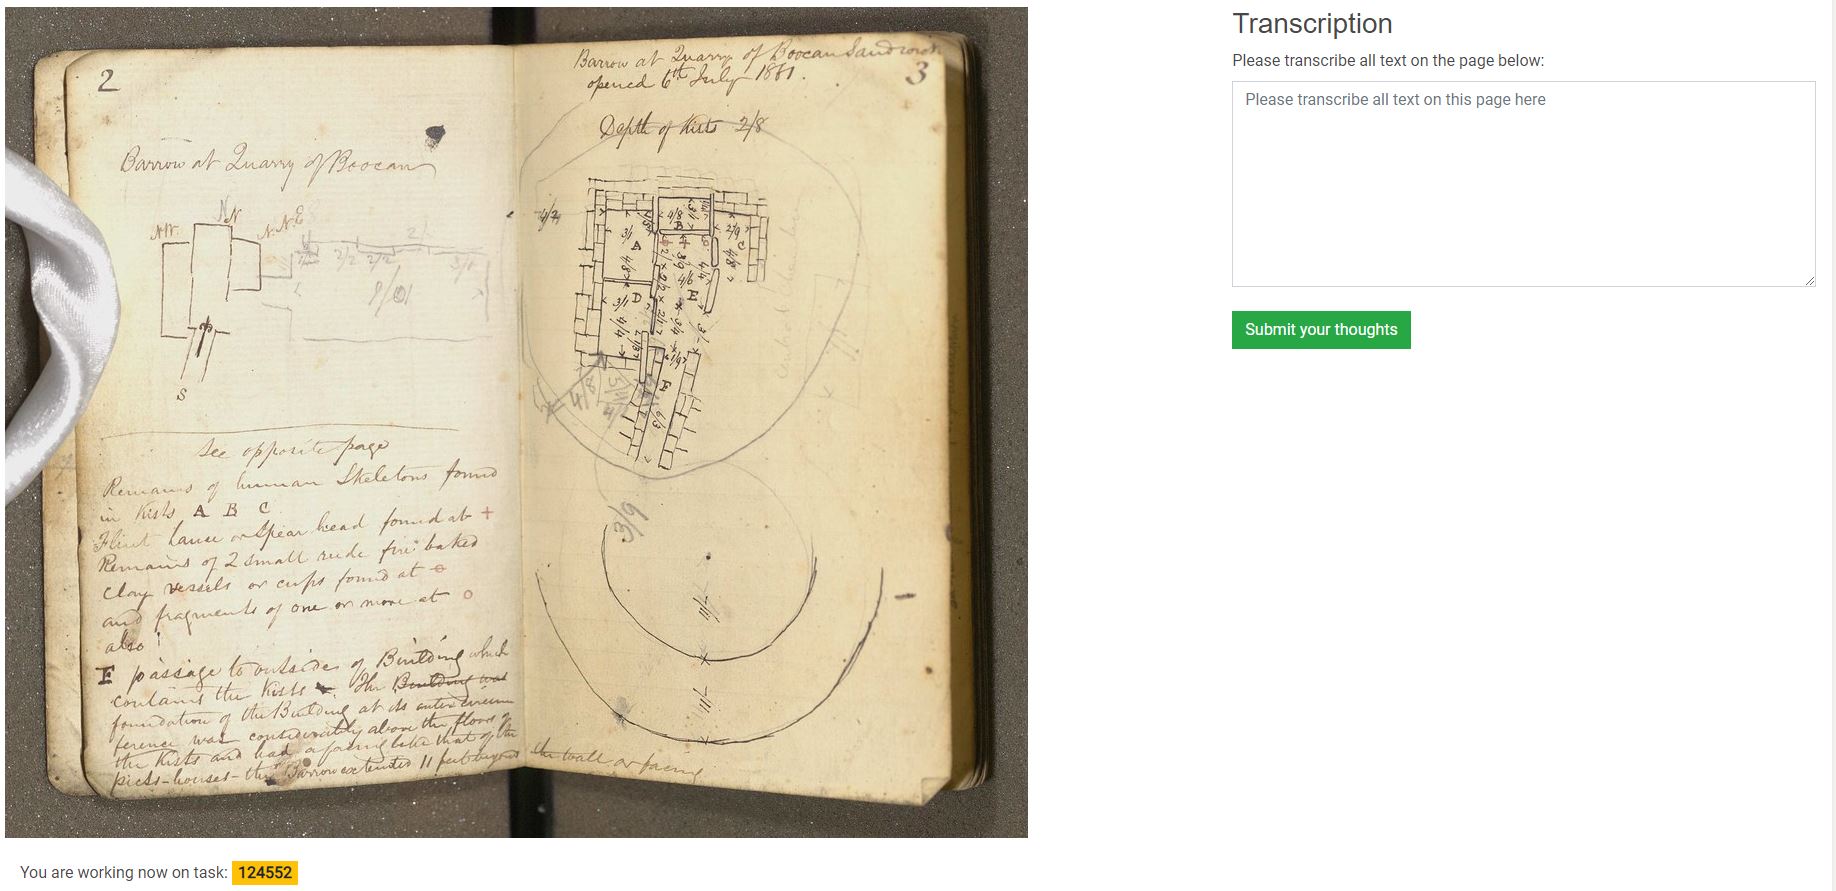 2
Barrow at Quarry of Boocan
NW
N N
N.N.E
2/
2/2 2/2
S
See opposite page
Remains of human Skeletons found
in Kists A B C
Flint Lance or Spear head found at +
Remains of 2 small rude fire baked
clay vessels or cups found at ⊖
and fragments of one or more at o
also
F passage to outside of Building which
contains the Kists. The Building was
foundation of the Building at its outer circum
ference was considerably above the floor of
the Kists and had a facing like that of the
picts-houses - the Barrow extended 11 feet beyond the wall or facing
Barrow at Quarry of Boocan Sandwick
opened 6th July 1861.
3
Depth of Kists 2/8
4/2
3/1
A
4/8
4/8
B
2/9
C
4/8
3/9
4/6
4/4
E
D
3/1
4/4
3/4
1/9
F
6/3
3/9
7/11
7/11
Transcription
Please transcribe all text on the page below:
Please transcribe all text on this page here
Submit your thoughts
You are working now on task: 124552